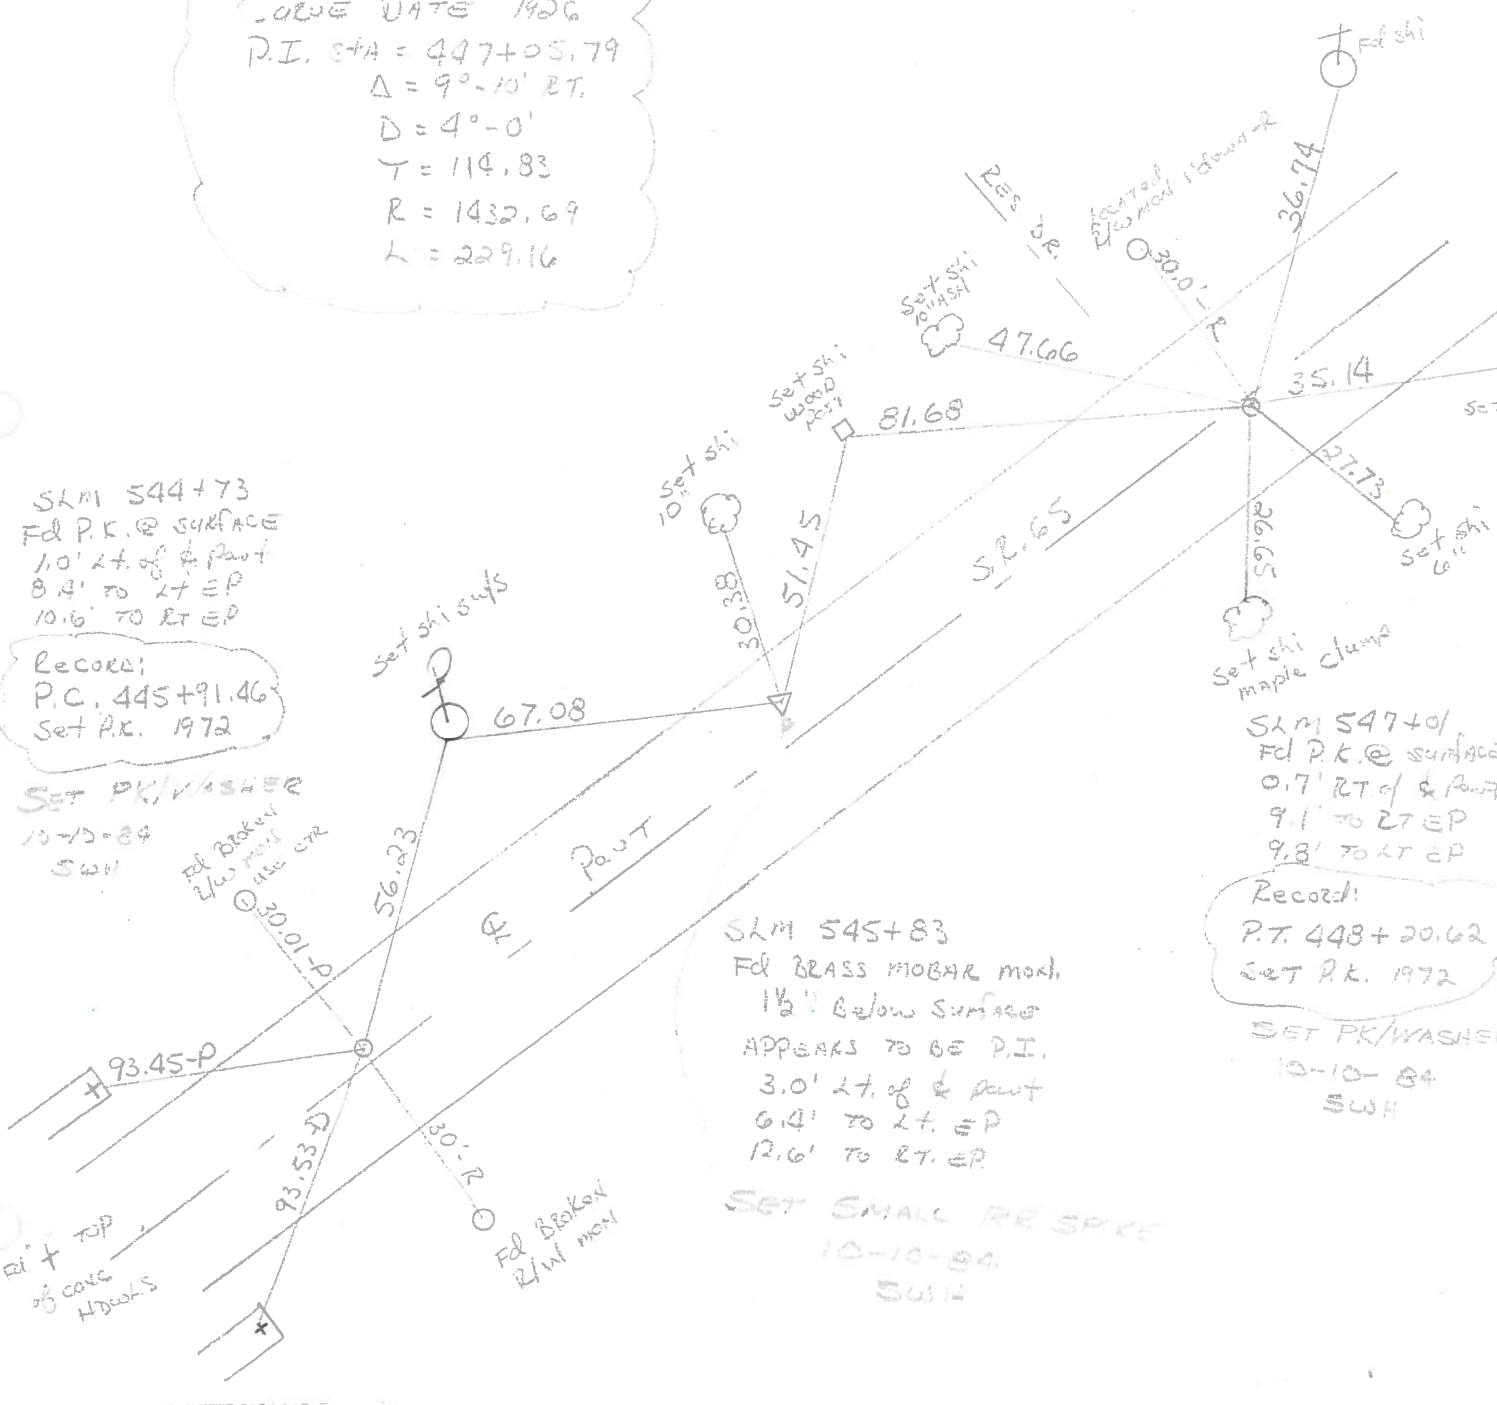 CURVE DATA 1926
P.I. StA = 447+05.79
Δ = 9°-10' RT.
D = 4°-0'
T = 114.83
R = 1432.69
L = 229.16
Fd shi
36.74
located
R/W mon
30.0'-R
RES DR.
Set shi
10" ASH
47.66
Set shi
WOOD
POST
81.68
35.14
27.73
Set shi
6"
26.65
Set shi
maple clump
Set shi
10"
30.38
51.45
S.R. 65
SLM 544+73
Fd P.K. @ SURFACE
1.0' Lt. of ℄ Pavt
8.4' TO Lt EP
10.6' TO RT EP
Record:
P.C. 445+91.46
Set P.K. 1972
SET PK/WASHER
10-10-84
SWH
Set shi sw/s
67.08
56.23
Fd BROKEN
R/W mon
USE CTR
30.01-P
PavT
℄
93.45-P
93.53-P
30'-R
Fd BROKEN
R/W MON
Fd "+" TOP
of conc
HDWLS
SLM 545+83
Fd BRASS MOBAR MON.
1½" Below Surface
APPEARS TO BE P.I.
3.0' Lt. of ℄ pavt
6.4' TO Lt. EP
12.6' TO RT. EP
SET SMALL RR SPIKE
10-10-84
SWH
SLM 547+01
Fd P.K. @ SURFACE
0.7' RT of ℄ Pavt
9.1' TO RT EP
9.8' TO LT EP
Record:
P.T. 448+20.62
SET P.K. 1972
SET PK/WASHE
10-10-84
SWH